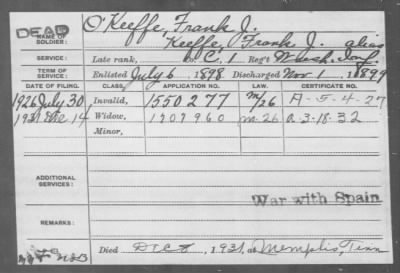 DEAD
O'Keeffe, Frank J.
NAME OF SOLDIER:
Keeffe, Frank J. alias
SERVICE:
Late rank, Co. C, 1 Reg't Wash. Inf.
TERM OF SERVICE:
Enlisted July 6 1898 Discharged Nov 1, 1899
DATE OF FILING. CLASS. APPLICATION NO. LAW. CERTIFICATE NO.
1926 July 30 Invalid, 1550277 m/26 A-5-4-27
1931 Dec 14 Widow, 1707960 m-26 a.3-18-32
Minor,
ADDITIONAL SERVICES:
War with Spain
REMARKS:
Died Dec 8, 1931, at Memphis, Tenn